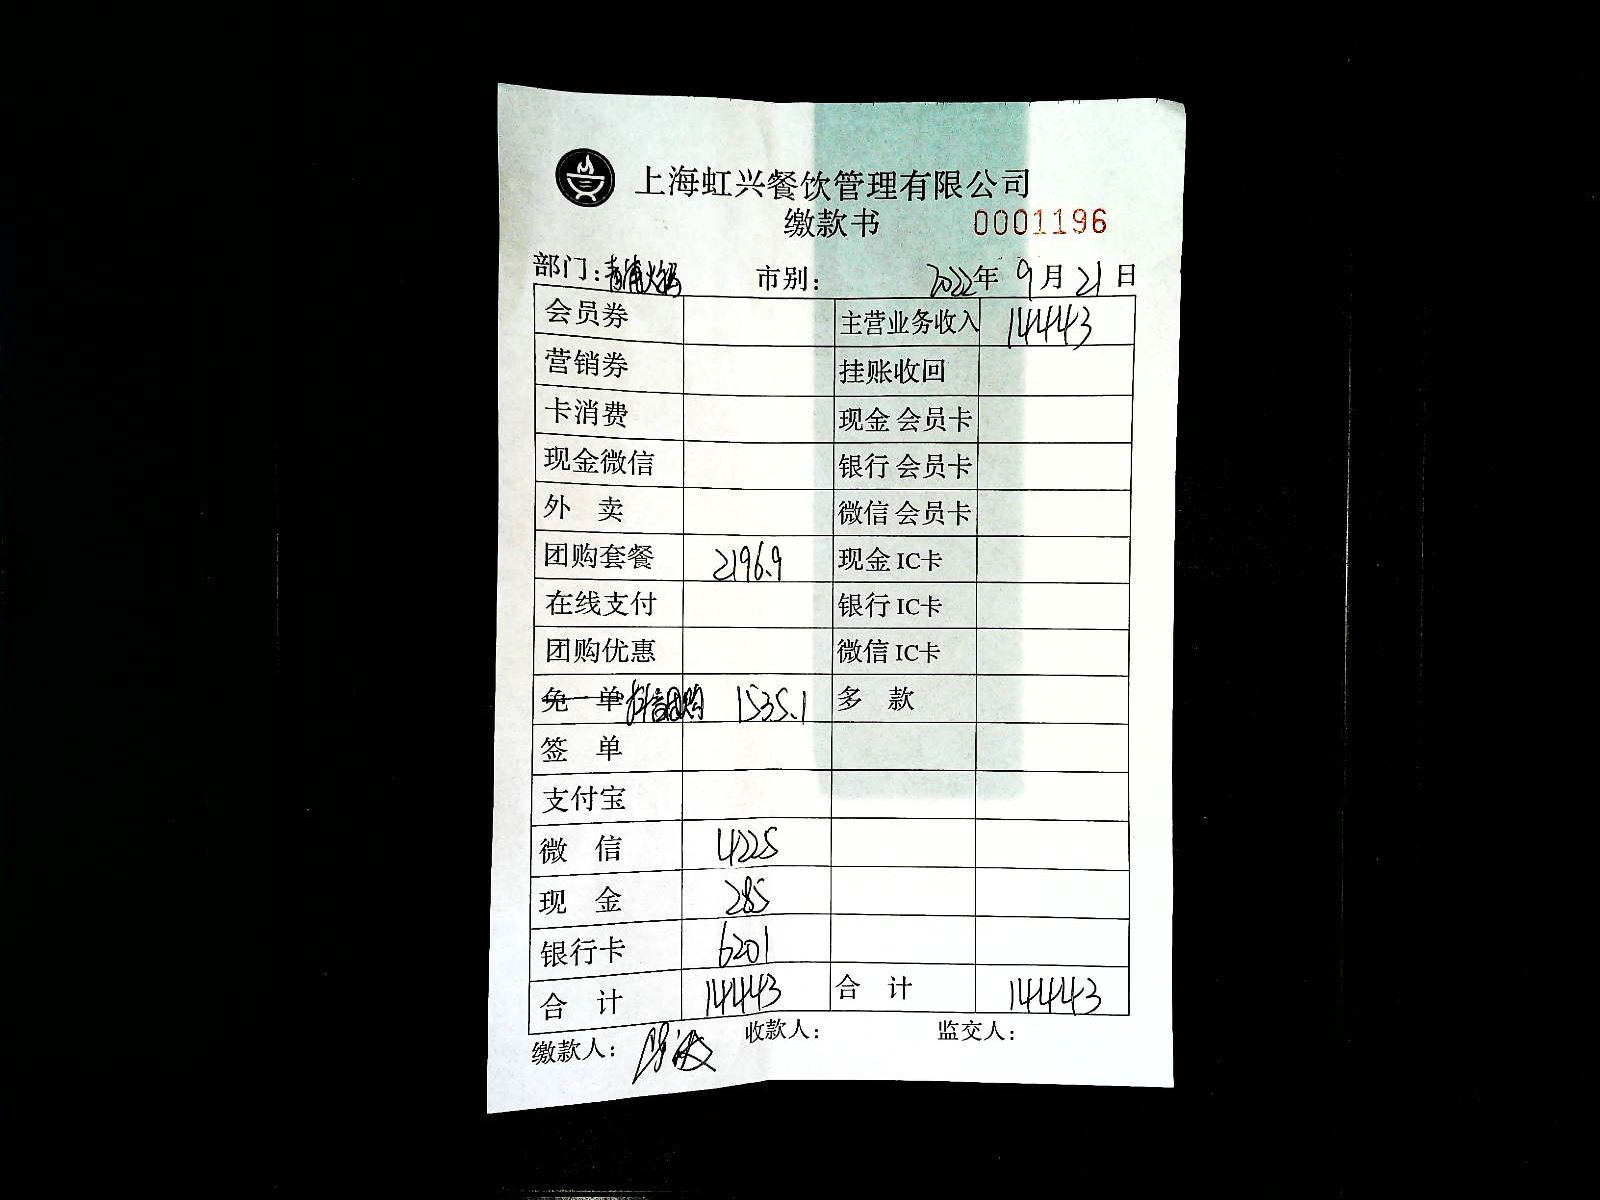 上海虹兴餐饮管理有限公司
缴款书 0001196
部门:青浦火锅 市别: 2022年 9月 21日
会员券 主营业务收入 14443
营销券 挂账收回
卡消费 现金 会员卡
现金微信 银行 会员卡
外 卖 微信 会员卡
团购套餐 2196.9 现金 IC卡
在线支付 银行 IC卡
团购优惠 微信 IC卡
免 单 抖音团购 1535.1 多 款
签 单
支付宝
微 信 4225
现 金 285
银行卡 6201
合 计 14443 合 计 14443
缴款人: 收款人: 监交人: